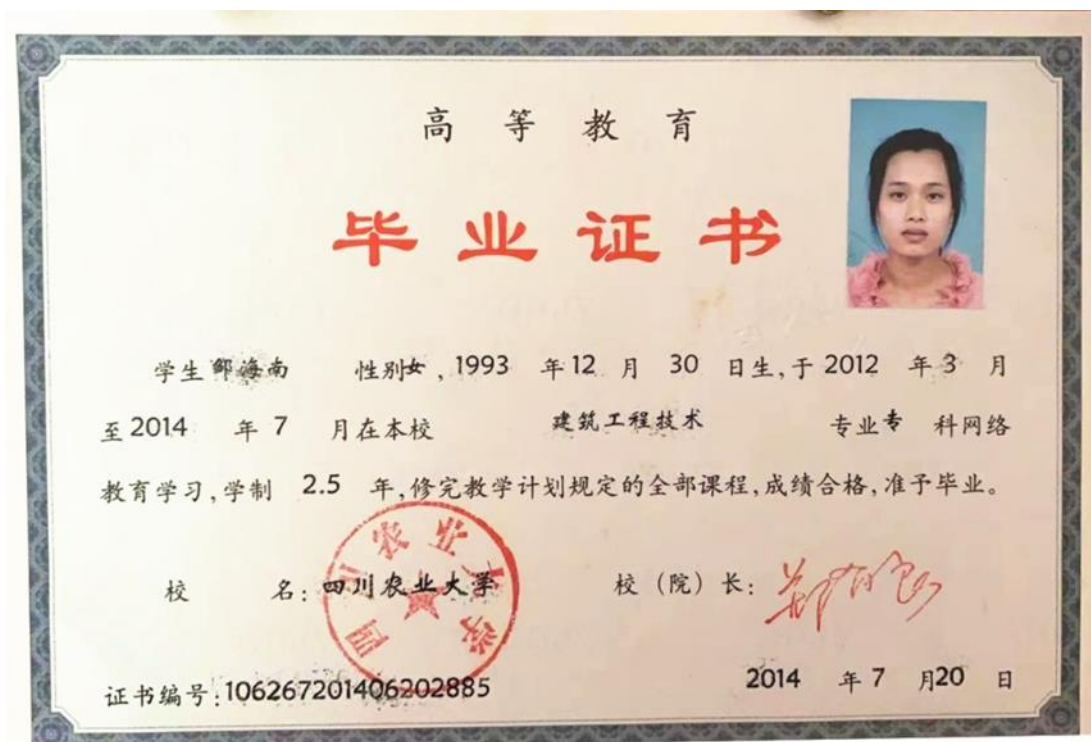 高等教育
毕业证书
学生邹海南 性别女,1993 年12 月 30 日生,于2012 年3 月
至2014 年7 月在本校 建筑工程技术 专业专 科网络
教育学习,学制 2.5 年,修完教学计划规定的全部课程,成绩合格,准予毕业。
校 名:四川农业大学 校(院)长:郑有良
四川农业大学
证书编号:106267201406202885 2014 年7 月20 日